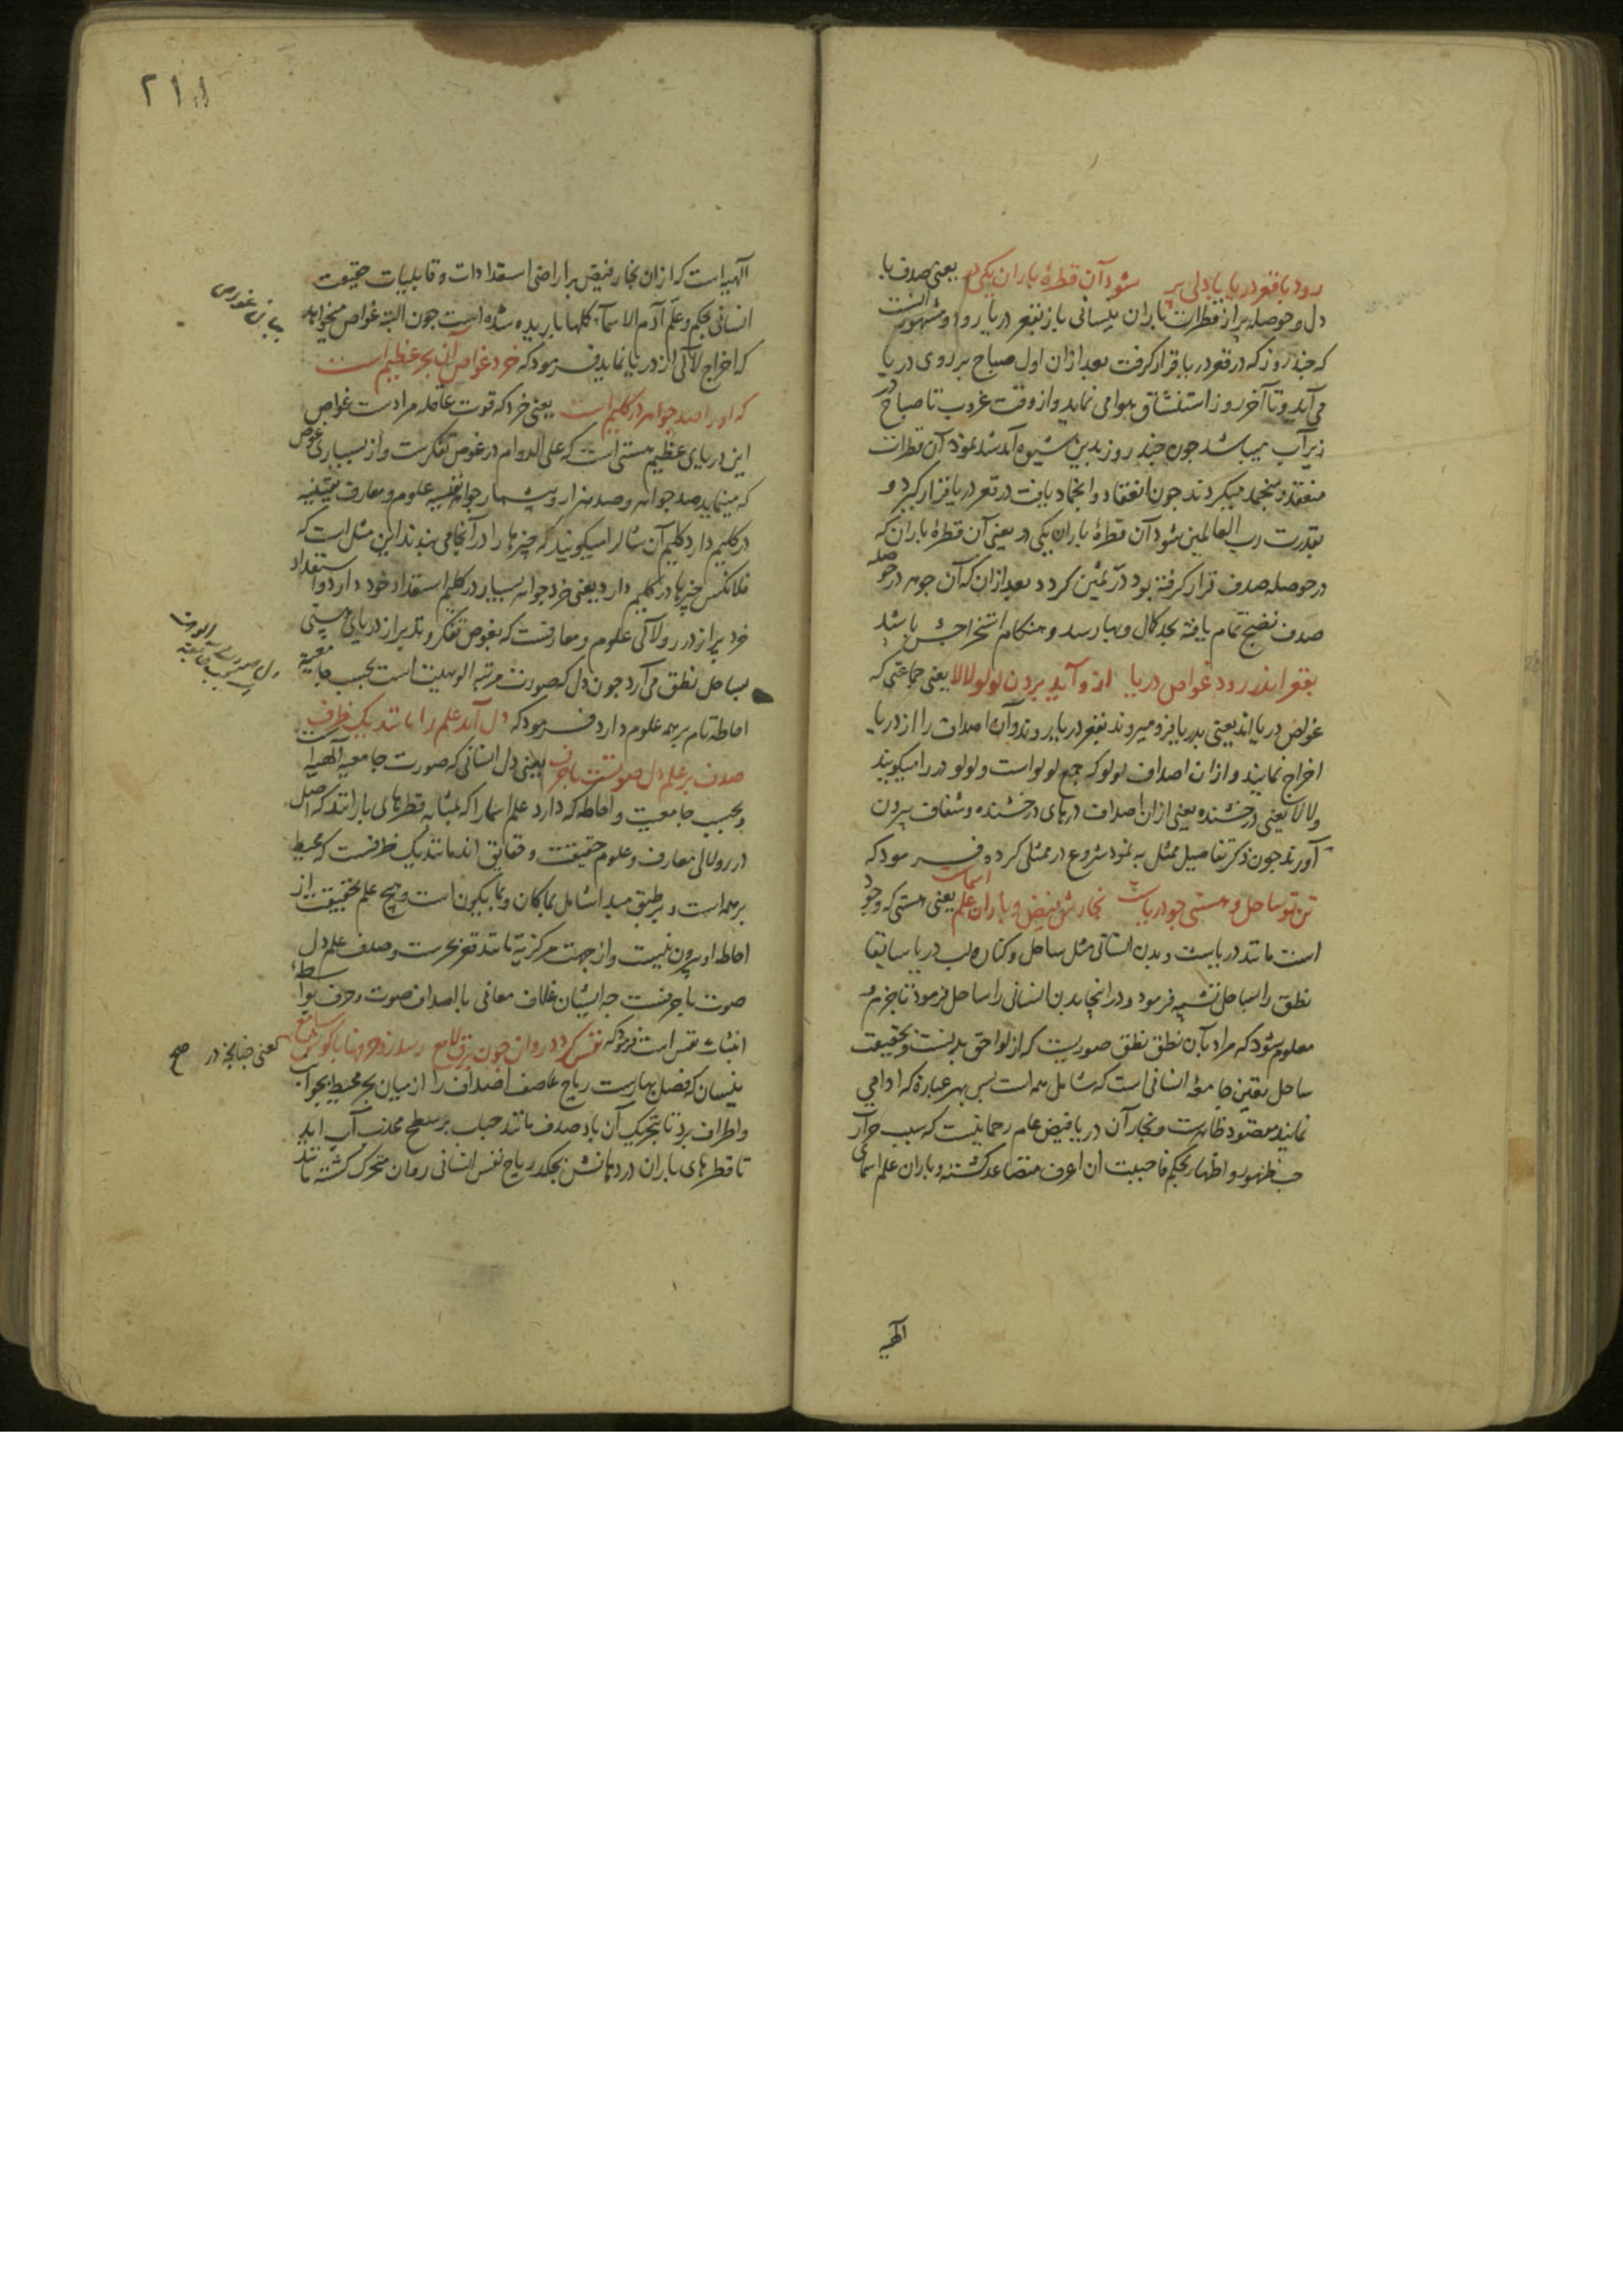 رود با قعر دریا با دلی پر شود آن قطرۀ باران یکی در یعنی صدف با
دل و حوصله پر از قطرات باران نیسانی باز بقعر دریا رود و مشهور است
که چند روز که در قعر دریا قرار گرفت بعد از ان اول صباح بر روی دریا
می آید و تا آخر روز استنشاق هوا می نماید و از وقت غروب تا صباح در
زیر آب میباشد چون چند روز بدین شیوه آمد شد نمود آن قطرات
منعقد و منجمد میکردند چون انعقاد و انجماد یافت در قعر دریا قرار کیرد و
بقدرت رب العالمین شود آن قطرۀ باران یکی در یعنی آن قطرۀ باران که
در حوصله صدف قرار کرفته بود درّ ثمین کردد بعد از ان که آن جوهر در حوصله
صدف نضج تمام یافته بحد کمال و بها رسد و هنکام استخراجش باشد
بقعر اندر رود غواص دریا از و آید برون لولو لالا یعنی جماعتی که
غواص دریا اند یعنی بدریا فرو میروند بقعر دریا روند و آن اصداف را از دریا
اخراج نمایند و از ان اصداف لولو که جمع لولو است و لولو در را میکویند
و لالا یعنی درخشنده یعنی از ان اصداف درهای درخشنده و شفاف بیرون
آورند چون ذکر تفاصیل ممثل به نمود شروع در ممثل کرده فرمود که
تن تو ساحل و هستی چو دریاست بخارش فیض و باران علم اسماست یعنی هستی که وجود
است مانند دریاست و بدن انسانی مثل ساحل و کناره لب دریا سابقا
نطق را بساحل تشبیه فرمود و در اینجا بدن انسانی را ساحل فرمود تا جزم
معلوم شود که مراد بآن نطق نطق صوریست که از لواحق بدنست و بحقیقت
ساحل تعین جامعۀ انسانی است که شامل همه است بس بهر عبارة که ادا می
نمایند مقصود ظاهرست و بخار آن دریا فیض عام رحمانیست که بسبب حرارت
حب ظهور و اظهار بحکم فاحببت ان اعرف متصاعد کشته و باران علم اسمای
الهیه
۲۱۸
الهیه است که از ان بخار فیض بر اراضی استعدادات و قابلیات حقیقت
انسانی بحکم و علم آدم الاسماء کلها باریده شده است چون البته غواص میخواهد
که اخراج لآلی از دریا نماید فرمود که خرد غواص ان بحر عظیم است
که او را صد جواهر در کلیم است یعنی خرد که قوت عاقله مرادست غواص
این دریای عظیم هستی است که علی الدوام در غوص تفکرست و از بسیاری غوص
که مینماید صد جواهر و صد هزار و بیشمار جواهر نفیسه علوم و معارف یقینیه
در کلیم دارد کلیم آن شال را میکویند که چیزها را در آنجا می بندند این مثل است که
فلانکس چیزها در کلیم دارد یعنی خرد جواهر بسیار در کلیم استعداد خود دارد و استعداد
خرد پر از در و لآلی علوم و معارفست که بغوص تفکر و تدبر از دریای هستی
بساحل نطق می آرد چون دل که صورت مرتبه الوهیت است بحسب جامعیة
احاطه تام بر همه علوم دارد فرمود که دل آمد علم را مانند یک ظرف
صدف بر علم دل صوتست با حرف یعنی دل انسانی که صورت جامعیه الهیه است
و بحسب جامعیت و احاطه که دارد علم اسما را که بمثابه قطرهای بارانند که اصل
در و لالی معارف و علوم حقیقت و حقایق اند مانند یک ظرفست که محیط
بر همه است و بر طبق مبدا شامل بما کان و بما یکون است و هیچ علم بحقیقت از
احاطه او بیرون نیست و از جهت مرکزیة مانند قعر بحرست و صدف علم دل
صوت با حرفست چه ایشان غلاف معانی با اصداف صوت و حرف بواسطۀ
انبثاث نفس است فرمود که نفس کردد روان چون برق لامع رسد زو حرفها با کوش سامع یعنی چنانچه در صح
نیسان که فصل بهارست ریاح عاصف اصداف را از میان بحر محیط بجوانب
و اطراف برد تا بتحریک آن باد صدف مانند حباب بر سطح محدب آب اید
تا قطرهای باران در دهانش بچکد ریاح نفس انسانی روان متحرک کشته مانند